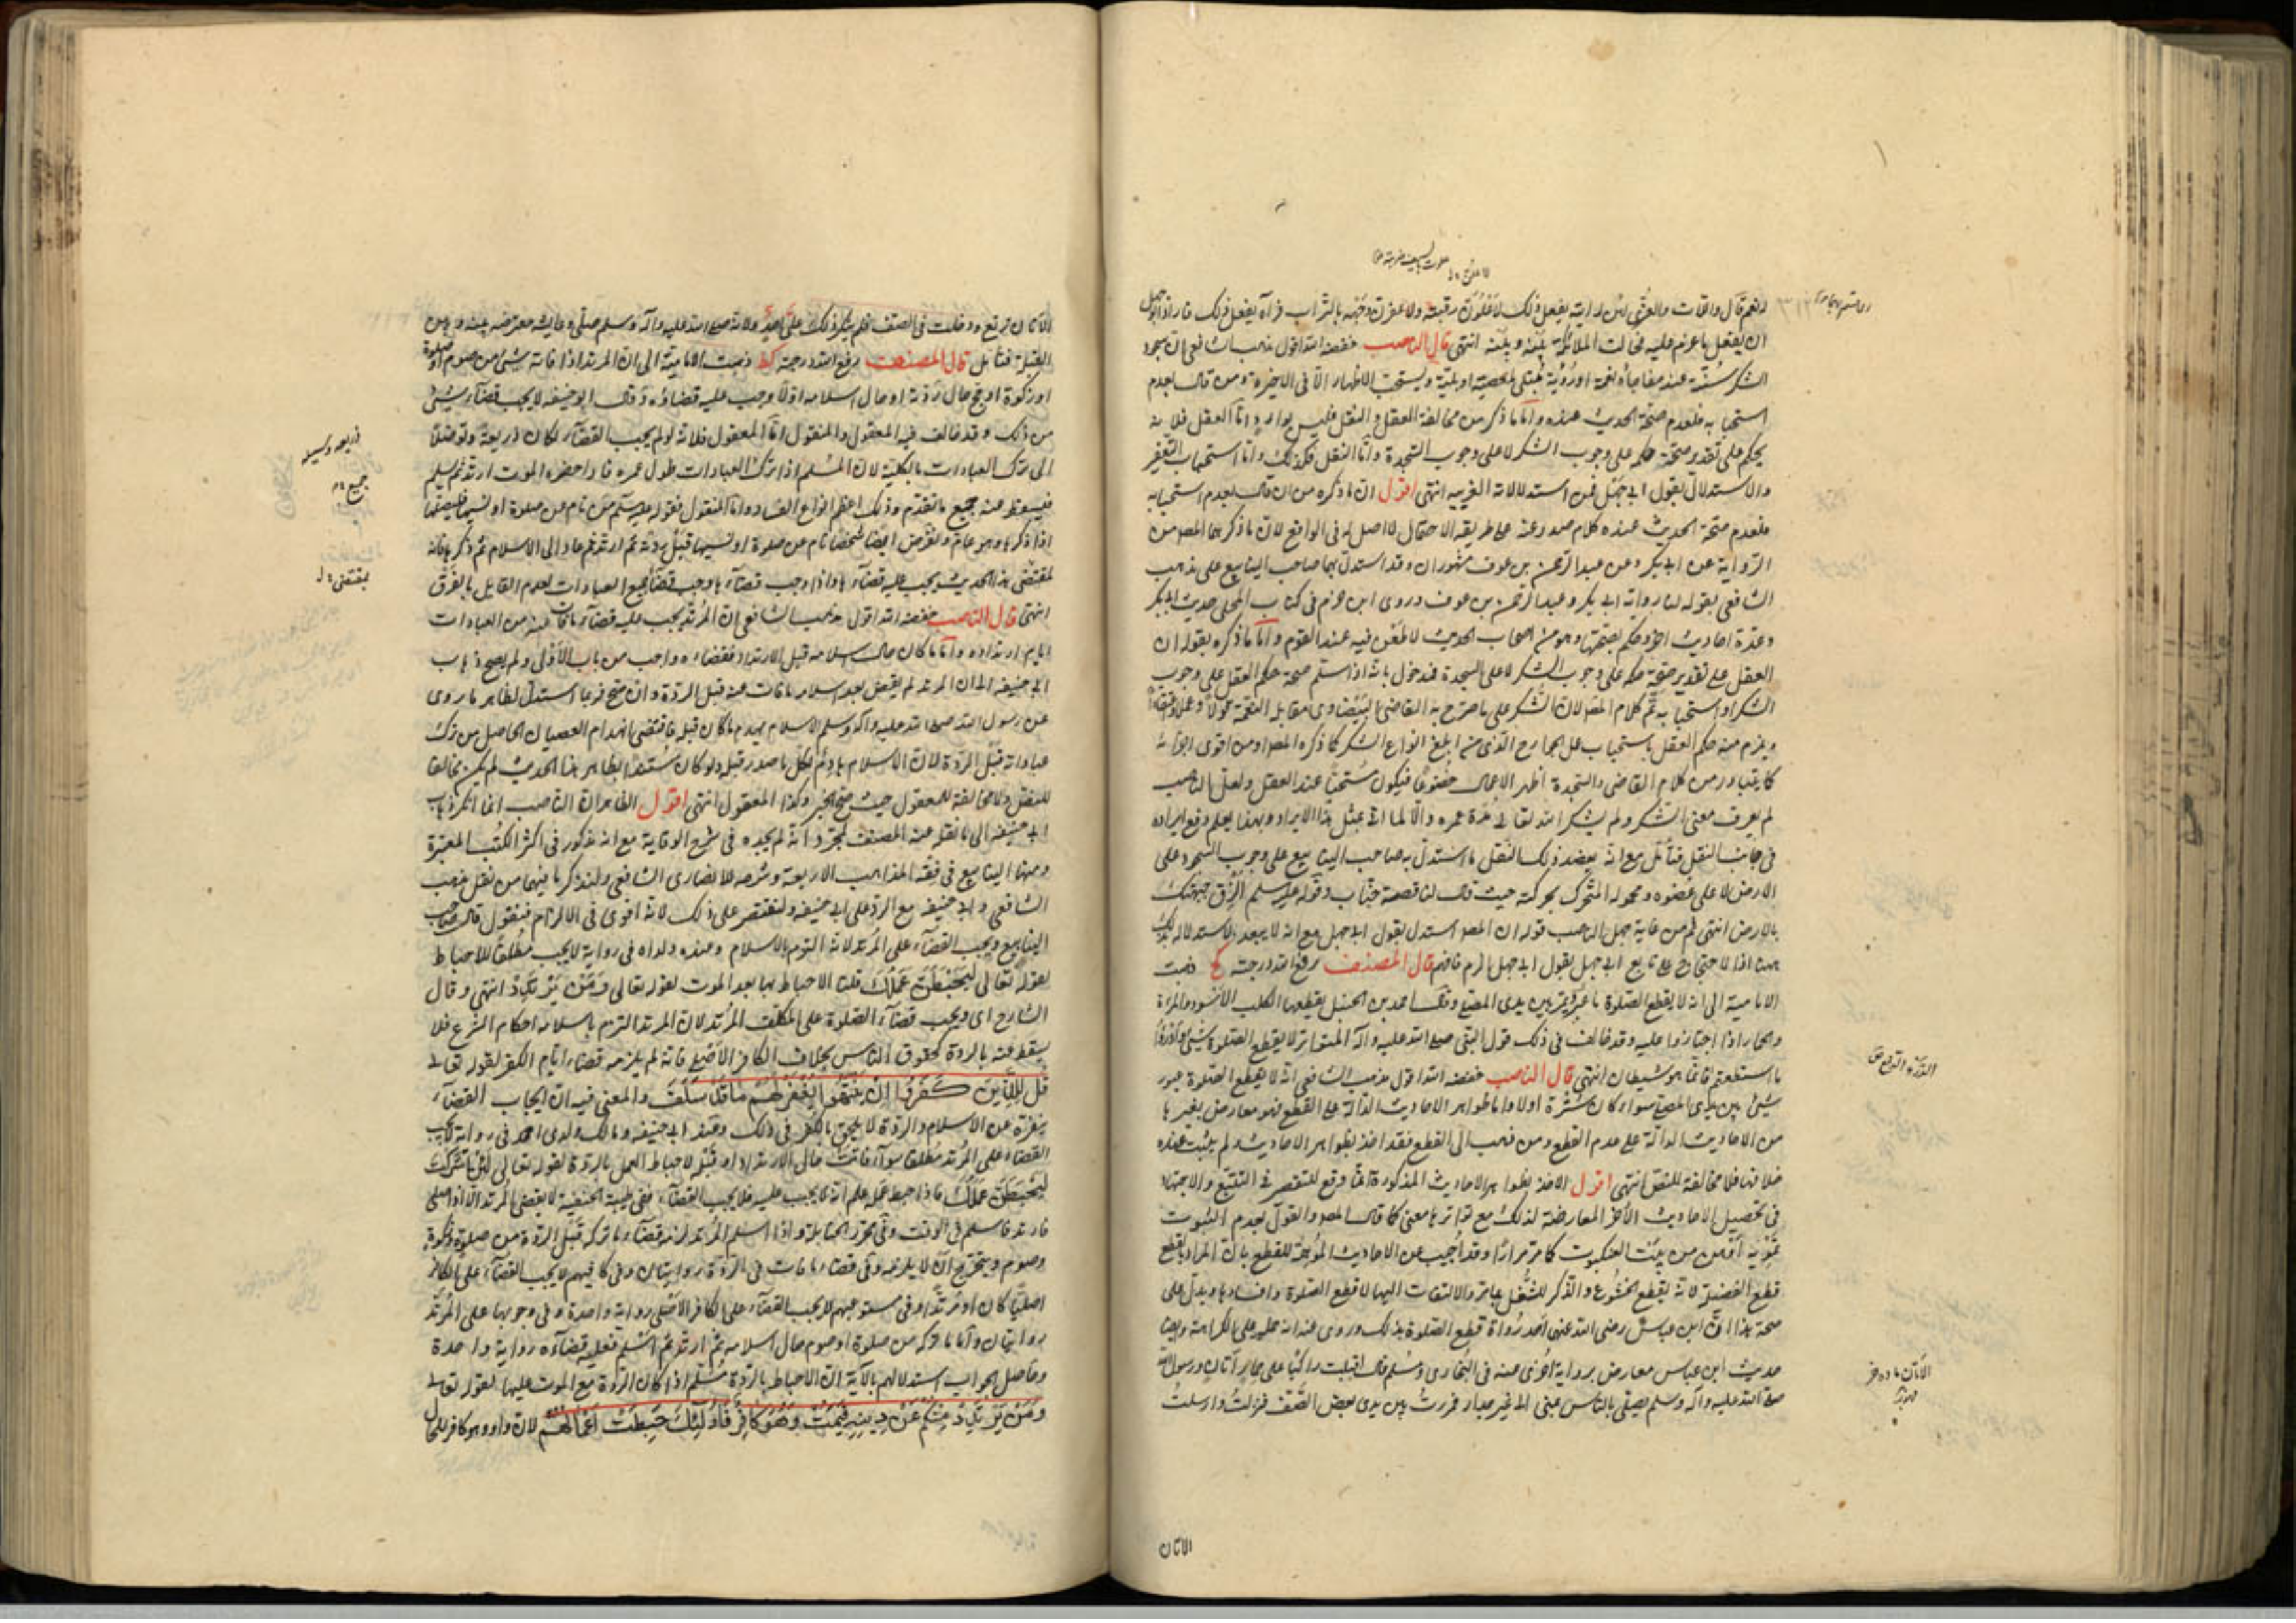 لا علون
نعم قال واللات والعزى لئن رايته يفعل ذلك لاعلون رقبته ولا عفرن وجهه بالتراب فرآه يفعل ذلك فاراد ابوجهل
ان يفعل ما عزم عليه فحالت الملائكة بينه وبينه انتهى قال الناصب خفضه الله اقول مذهب الشافعي ان سجود
الشكر سنة عند مفاجأة نعمة او رؤية مبتلى بمعصية او بلية ويستحب الاظهار الا في الاخيرة ومن قال بعدم
استحبابه فلعدم صحة الحديث عنده واما ما ذكر من مخالفة العقل والنقل فليس بوارد واما العقل فلانه
يحكم على تقدير صحة حكمه على وجوب الشكر لا على وجوب السجدة واما النقل فكذلك واما استحباب التعفير
والاستدلال بقول ابي جهل فمن استدلالاته الغريبه انتهى اقول ان ما ذكره من ان قال بعدم استحبابه
فلعدم صحة الحديث عنده كلام صدر عنه على طريقه الاحتمال لا اصل له في الواقع لان ما ذكرهما المصـ من
الرواية عن ابي بكر وعن عبد الرحمن بن عوف مشهوران وقد استدل بهما صاحب الينابيع على مذهب
الشافعي بقوله لنا رواية ابي بكر وعبد الرحمن بن عوف وروى ابن حزم في كتاب المحلى حديث ابي بكر
وعدة احاديث اخر وحكم بصحتها وهو من اصحاب الحديث لا مطعن فيه عند القوم واما ما ذكره بقوله ان
العقل على تقدير صحة حكمه على وجوب الشكر لا على السجدة فمدخول بانه اذا سلم صحة حكم العقل على وجوب
الشكر او استحبابه تم كلام المصـ لان الشكر على ما صرح به القاضي البيضاوي مقابلة النعمة قولا وعملا واعتقادا
ويلزم منه حكم العقل باستحباب عمل الجوارح الذي من ابلغ انواع الشكر كما ذكره المصـ او من اقوى
كما يتبادر من كلام القاضي والسجدة اظهر الاعمال خضوعا فيكون مستحبا عند العقل ولعل الناصب
لم يعرف معنى الشكر ولم يشكر الله تعالى مدة عمره والا لما اتى بمثل هذا الايراد وبهذا يعلم دفع ايراده
في جانب النقل فتأمل مع انه يعضد ذلك النقل ما استدل به صاحب الينابيع على وجوب السجود على
الارض لا على عضوه ومحموله المتحرك بحركته حيث قال لنا قصة خباب وقوله عليه السلم الزق جبهتك
بالارض انتهى ثم من غاية جهل الناصب قوله ان المصـ استدل بقول ابي جهل مع انه لا يبعد الاستدلال بذلك
بهذا اذا الاحتجاج على تابع ابي جهل بقول ابي جهل الزم فافهم قال المصنف رفع الله درجته كح ذهبت
الامامية الى انه لا يقطع الصلوة ما يمر بين يدي المصلي وقال احمد بن الحنبل يقطعها الكلب الاسود والمراة
والحمار اذا اجتازوا عليه وقد خالف في ذلك قول النبي صلى الله عليه وآله المتواتر لا يقطع الصلوة شيئ وادرؤا
ما استطعتم فانما هو شيطان انتهى قال الناصب خفضه الله اقول مذهب الشافعي انه لا يقطع الصلوة عبور
شيئ بين يدي المصلي سواء كان سترة اولا واما ظواهر الاحاديث الدالة على القطع فهو معارض بغيرها
من الاحاديث الدالة على عدم القطع ومن ذهب الى القطع فقد اخذ بظواهر الاحاديث ولم يثبت عنده
خلافها فلا مخالفة للنقل انتهى اقول الاخذ بظواهر الاحاديث المذكورة انما وقع للتقصير في التتبع والاجتهاد
في تحصيل الاحاديث الاخر المعارضة لذلك مع تواترها معنى كما قال المصـ والقول بعدم الثبوت
تمويه اوهن من بيت العنكبوت كما مر مرارا وقد اجيب عن الاحاديث الموهمة للقطع بان المراد بقطع
قطع الفضيلة لانه يقطع الخشوع والذكر للشغل بها مر والالتفات اليها لا قطع الصلوة وافسادها ويدل على
صحة هذا ان ابن عباس رضي الله عنهما احد رواة قطع الصلوة بذلك وروى عنه انه حمله على الكراهة وايضا
حديث ابن عباس معارض برواية اخرى عنه في البخاري ومسلم قال اقبلت راكبا على حمار اتان ورسول الله
صلى الله عليه وآله وسلم يصلي بالناس بمنى الى غير جدار فمررت بين يدي بعض الصف فنزلت وارسلت
الاتان
الاتان ترتع ودخلت في الصف فلم ينكر ذلك علي احد ولانه صلى الله عليه وآله وسلم صلى وعايشه معترضه بينه وبين
القبلة فتأمل قال المصنف رفع الله درجته كط ذهبت الامامية الى ان المرتد اذا فاته شيئ من صوم او صلوة
او زكوة او حج حال ردته او حال اسلامه اولا وجب عليه قضاؤه وقال ابو حنيفه لا يجب قضاء شيئ
من ذلك وقد خالف فيه المعقول والمنقول اما المعقول فلانه لو لم يجب القضاء لكان ذريعة وتوصلا
الى ترك العبادات بالكلية لان المسلم اذا ترك العبادات طول عمره فاذا حضره الموت ارتد ثم يسلم
فيسقط عنه جميع ما تقدم وذلك اعظم انواع الفساد واما المنقول فقوله عليه السلم من نام عن صلوة او نسيها فليصلها
اذا ذكرها وهو عام ولنفرض ايضا شخصا نام عن صلوة او نسيها قبل ردته ثم ارتد ثم عاد الى الاسلام ثم ذكرها فانه
لمقتضى هذا الحديث يجب عليه قضاءها واذا وجب قضاءها وجب قضاء جميع العبادات لعدم القايل بالفرق
انتهى قال الناصب خفضه الله اقول مذهب الشافعي ان المرتد يجب عليه قضاء ما فات عنه من العبادات
ايام ارتداده واما ما كان حال اسلامه قبل الارتداد فقضاءه واجب من باب الاولى ولم يصح ذهاب
ابي حنيفه الى ان المرتد لم يقض بعد اسلامه ما فات عنه قبل الردة وان صح فربما استدل لظاهر ما روى
عن رسول الله صلى الله عليه وآله وسلم الاسلام يهدم ما كان قبله فاقتضى انهدام العصيان الحاصل من ترك
عباداته قبل الردة لان الاسلام هادم لكل ما صدر قبله ولو كان مستندا بظاهر هذا الحديث لم يكن مخالفا
للنقل ولا مخالفة للمعقول حيث صح الخبر وكذا المعقول انتهى اقول الظاهر ان الناصب انما انكر ذهاب
ابي حنيفه الى ما نقله عنه المصنف بمجرد انه لم يجده في شرح الوقاية مع انه مذكور في اكثر الكتب المعتبرة
ومنها الينابيع في فقه المذاهب الاربعة وشرحه للانصاري الشافعي ولنذكر ما فيهما من نقل مذهب
الشافعي وابي حنيفه مع الرد على ابي حنيفه ولنقتصر على ذلك لانه اقوى في الالزام فنقول قال صاحب
الينابيع ويجب القضاء على المرتد لانه التزم بالاسلام وعنده ولداه في رواية لا يجب مطلقا للاحباط
بقوله تعالى ليحبطن عملك قلنا الاحباط بها بعد الموت لقوله تعالى ومن يرتدد انتهى وقال
الشارح اي ويجب قضاء الصلوة على المكلف المرتد لان المرتد التزم باسلامه احكام الشرع فلا
يسقط عنه بالردة كحقوق الناس بخلاف الكافر الاصلي فانه لم يلزمه قضاء ايام الكفر لقوله تعالى
قل للذين كفروا ان ينتهوا يغفر لهم ما قد سلف والمعنى فيه ان ايجاب القضاء
ينفره عن الاسلام والردة لا يلحق بالكفر في ذلك وعند ابي حنيفه ومالك ولدى احمد في رواية لا يجب
القضاء على المرتد مطلقا سواء فاتت حال الارتداد او قبله لاحباط العمل بالردة لقوله تعالى لئن اشركت
ليحبطن عملك فاذا حبط عمله علم انه لا يجب عليه فلا يجب القضاء ففي غنية الحنفية لا يقضي المرتد الا اذا صلى
فارتد فاسلم في الوقت وفي محرر الحنابلة واذا اسلم المرتد لزمه قضاء ما تركه قبل الردة من صلوة وزكوة
وصوم ويتخرج ان لا يلزمه وفي قضاء ما فات في الردة روايتان وفي كافيهم لا يجب القضاء على الكافر
اصليا كان او مرتدا وفي مستوعبهم لا يجب القضاء على الكافر الاصلي رواية واحدة وفي وجوبها على المرتد
روايتان واما ما تركه من صلوة او صوم حال اسلامه ثم ارتد ثم اسلم فعليه قضاءه رواية واحدة
وحاصل الجواب استدلالهم بالآية ان الاحباط بالردة مسلم اذا كان الردة مع الموت عليها لقوله تعالى
ومن يرتدد منكم عن دينه فيمت وهو كافر فاولئك حبطت اعمالهم لان واو وهو كافر للحال
ذريعه وسيله
جميع
بمقتضى